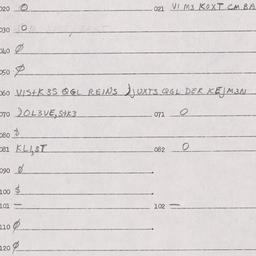 020 0 021 VI M3 KOXT CM.BA
030 0
040 Ø
050 Ø
060 VIS+K3S QGL REINS JJUXT3 QGL DER KEJM3N
070 DOL3VE, S+K3 071 0
080 $
081 KLI,3T 082 0
090 Ø
100 $
101 — 102 —
110 Ø
120 Ø